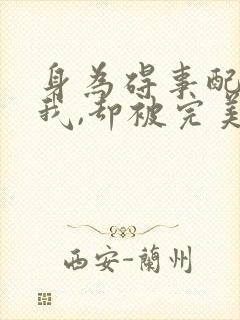 身為碍事配
我,却被完美
西安-蘭州